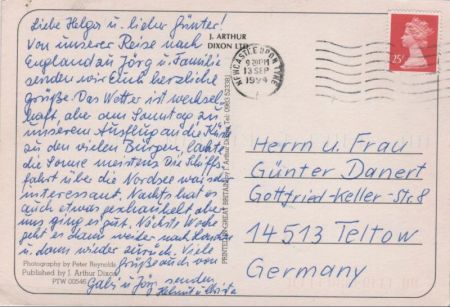 Liebe Helga u. lieber Günter!
Von unserer Reise nach
England zu Jörg u. Familie
senden wir Euch herzliche
Grüße. Das Wetter ist wechsel-
haft, aber am Sonntag zu
unserem Ausflug an die Küste
zu den vielen Burgen, lachte
die Sonne meistens. Die Schiffs-
fahrt über die Nordsee war sehr
interessant. Nachts hat es
auch etwas geschaukelt aber
uns ging es gut. Nächste Woche
geht es dann weiter nach London
u. dann wieder zurück. Viele
Grüße auch von
Gabi u. Jörg senden
Helmut u. Christa
Photography by Peter Reynolds
Published by J. Arthur Dixon
PTW 00546
J. ARTHUR
DIXON LTD.
PRINTED IN GREAT BRITAIN by J. Arthur Dixon
NEWCASTLE UPON TYNE
13 SEP
1994
25
Herrn u. Frau
Günter Danert
Gottfried-Keller-Str. 8
14513 Teltow
Germany